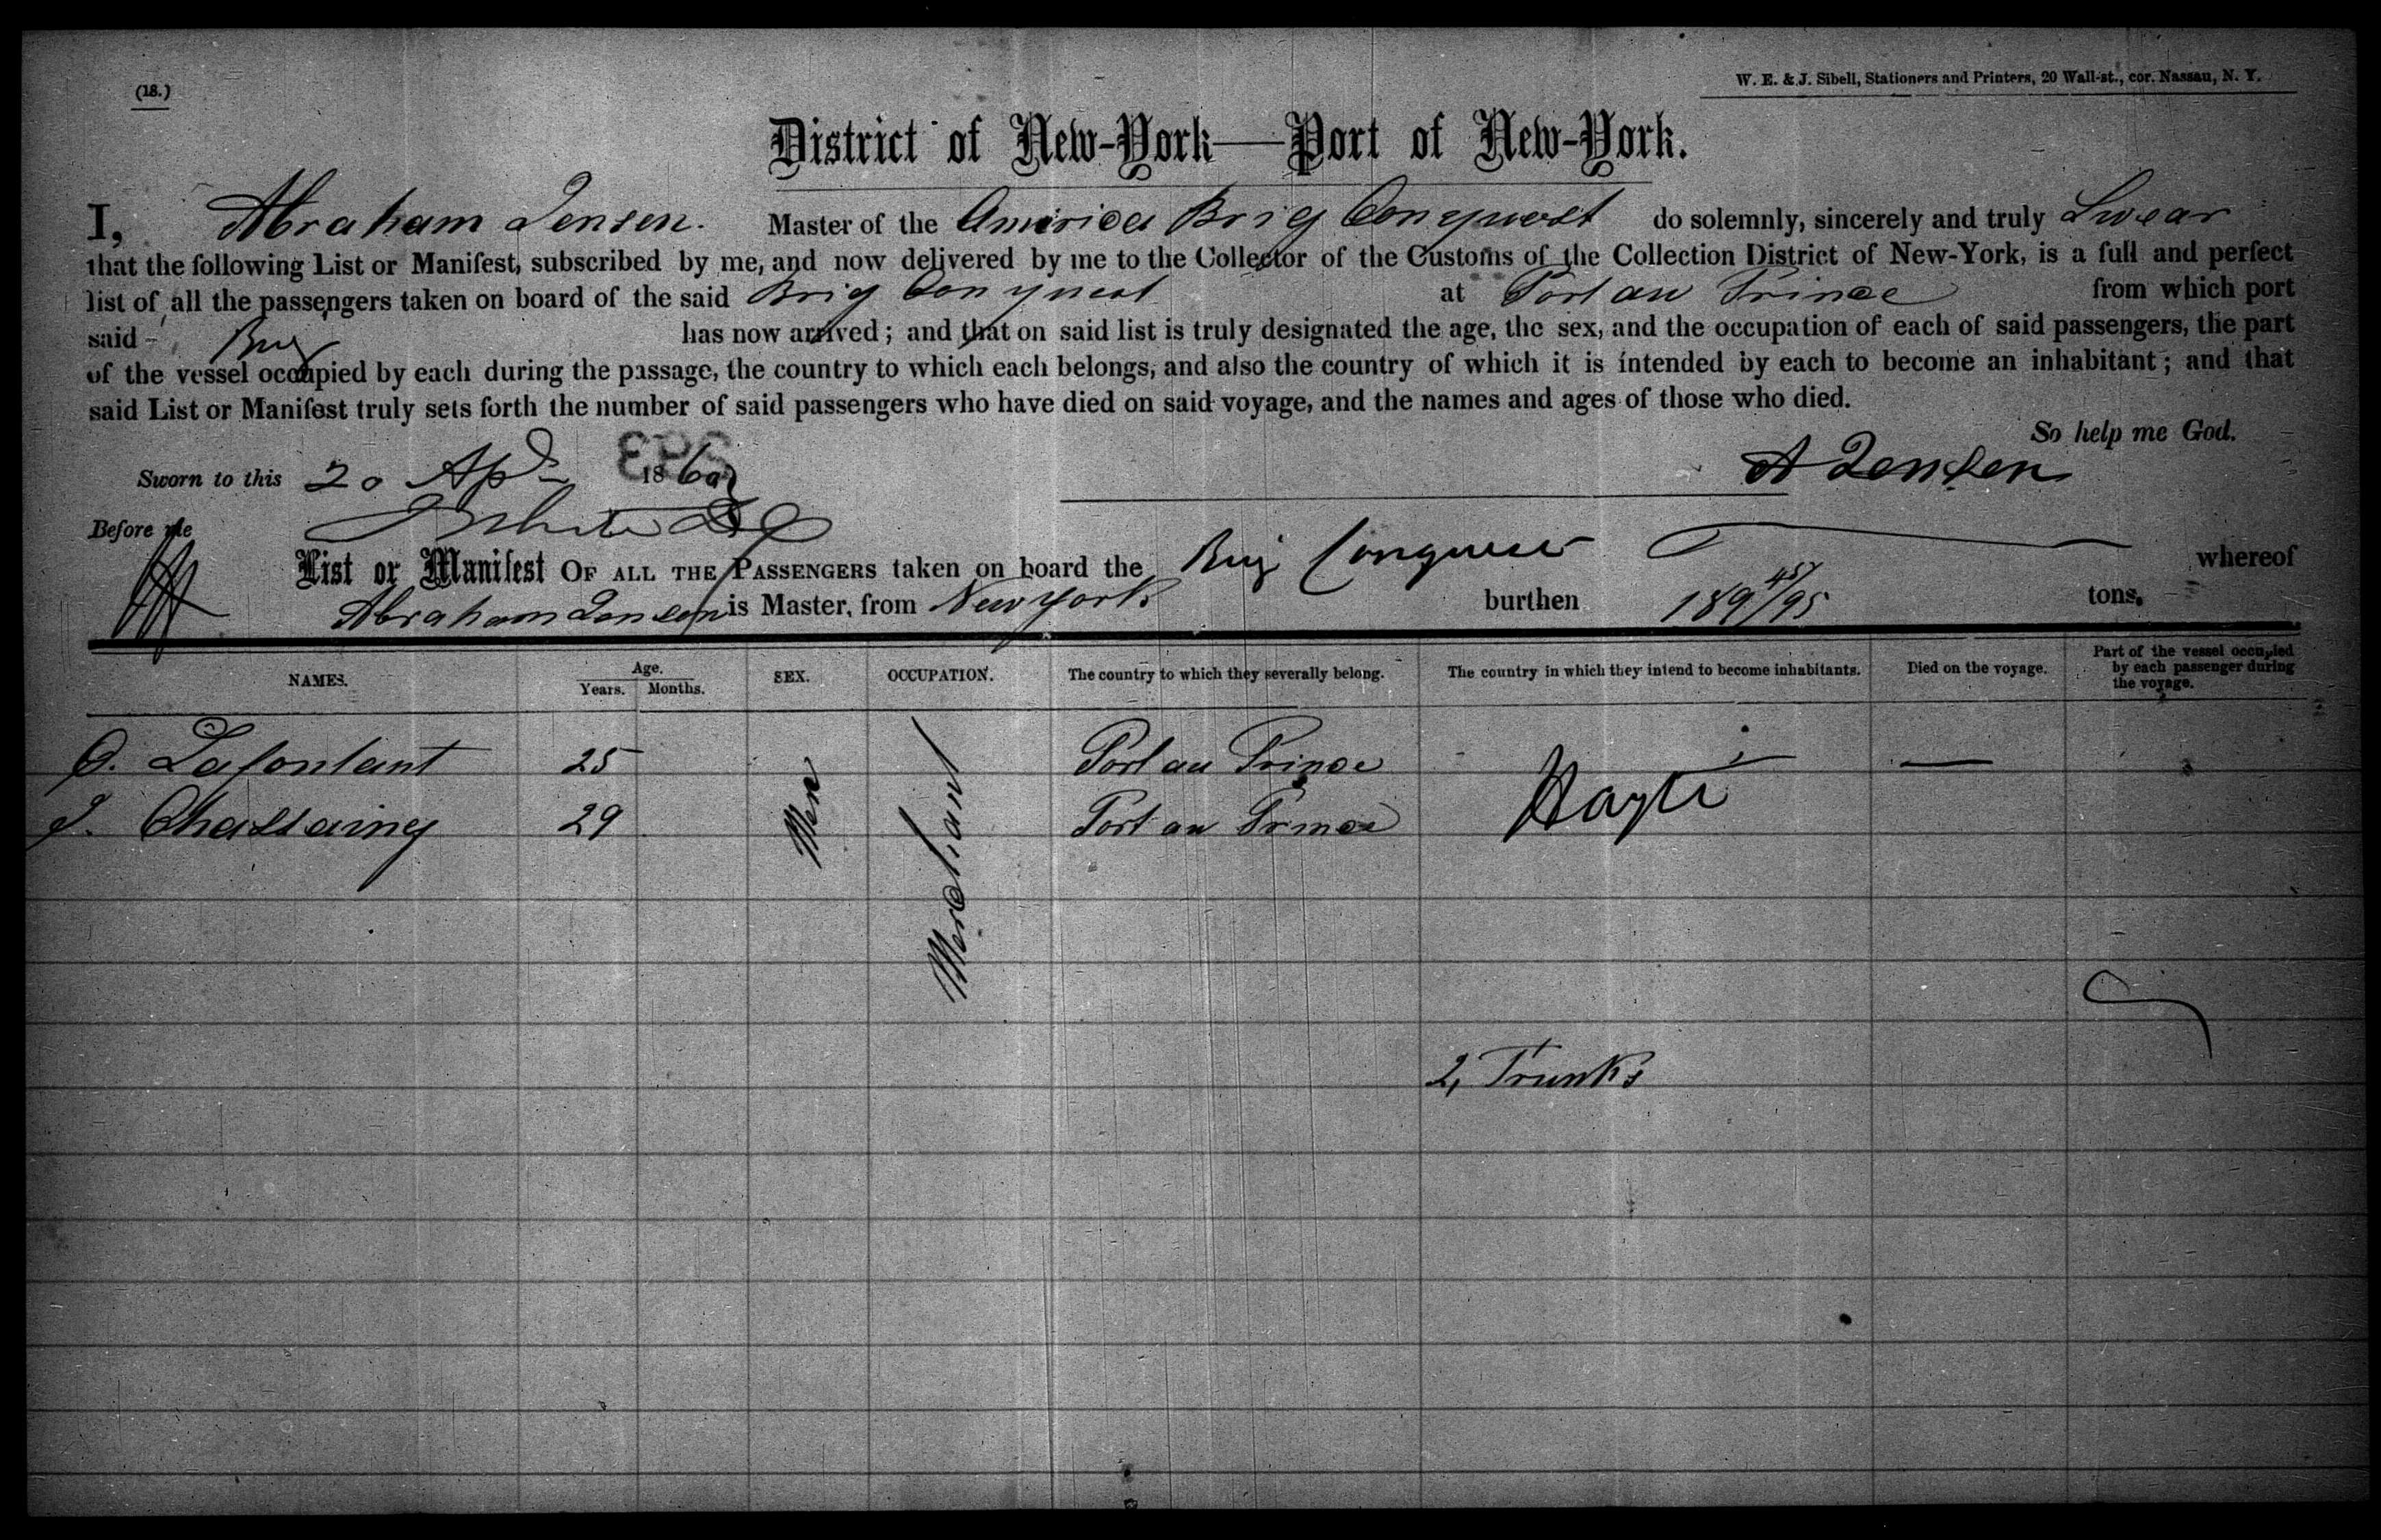 (18.)
W. E. & J. Sibell, Stationers and Printers, 20 Wall-st., cor. Nassau, N. Y.
District of New-York—Port of New-York.
I, Abraham Jensen. Master of the America Brig Conquest do solemnly, sincerely and truly Swear
that the following List or Manifest, subscribed by me, and now delivered by me to the Collector of the Customs of the Collection District of New-York, is a full and perfect
list of all the passengers taken on board of the said Brig Conquest at Port au Prince from which port
said Brig has now arrived; and that on said list is truly designated the age, the sex, and the occupation of each of said passengers, the part
of the vessel occupied by each during the passage, the country to which each belongs, and also the country of which it is intended by each to become an inhabitant; and that
said List or Manifest truly sets forth the number of said passengers who have died on said voyage, and the names and ages of those who died.
So help me God.
Sworn to this 20 Apl 1860 A Jensen
Before me
List or Manifest OF ALL THE PASSENGERS taken on board the Brig Conquest whereof
Abraham Jensen is Master, from New York burthen 189 45/95 tons.
NAMES. Age. Years. Months. SEX. OCCUPATION. The country to which they severally belong. The country in which they intend to become inhabitants. Died on the voyage. Part of the vessel occupied by each passenger during the voyage.
O. Lafontant 25 Men Merchant Port au Prince Hayti —
J. Chassaing 29 Port au Prince
2, Trunks